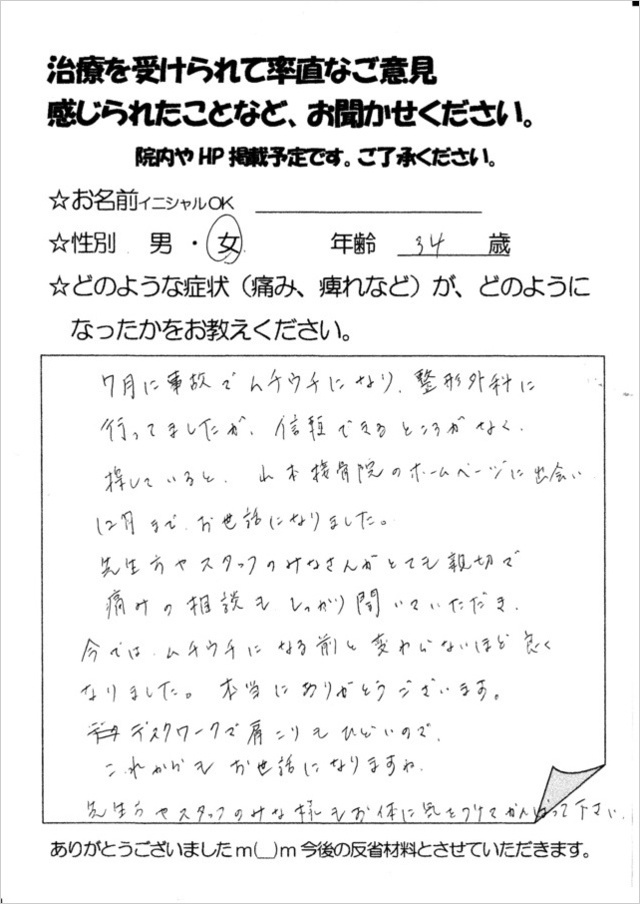 治療を受けられて率直なご意見
感じられたことなど、お聞かせください。
院内やHP掲載予定です。ご了承ください。
☆お名前イニシャルOK
☆性別 男・女 年齢 34 歳
☆どのような症状（痛み、痺れなど）が、どのように
なったかをお教えください。
7月に事故でムチウチになり、整形外科に
行ってましたが、信頼できるところがなく、
探していると、山本接骨院のホームページに出会い
12月まで、お世話になりました。
先生方やスタッフのみなさんがとても親切で
痛みの相談もしっかり聞いていただき、
今では、ムチウチになる前と変わらないほど良く
なりました。本当にありがとうございます。
デスクワークで肩こりもひどいので、
これからもお世話になりますね。
先生方やスタッフのみな様もお体に気をつけてがんばって下さい。
ありがとうございましたm(__)m今後の反省材料とさせていただきます。